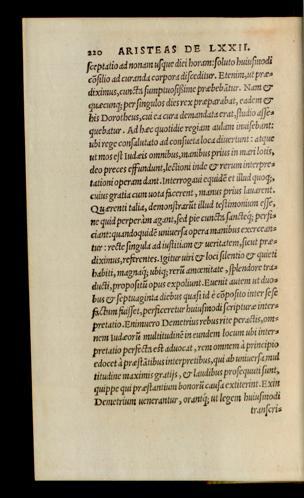 220 ARISTEAS DE LXXII.
sceptatio ad nonam usque diei horam: soluto huiusmodi
cōsilio ad curanda corpora disceditur. Etenim, ut præ-
diximus, cuncta sumptuosissime præbebātur. Nam &
quæcunq; per singulos dies rex præparabat, eadem &
his Dorotheus, cui ea cura demandata erat, studio asse-
quebatur. Ad hæc quotidie regiam aulam inuisebant:
ubi rege consalutato ad consueta loca diuertunt: atque
ut mos est Iudæis omnibus, manibus prius in mari lotis,
deo preces effundunt, lectioni inde & rerum interpre-
tationi operam dant. Interrogaui equidē et illud quoq;,
cuius gratia cum uota facerent, manus prius lauarent.
Quærenti talia, demonstrarūt illud testimonium esse,
ne quid perperàm agant, sed pie cuncta sancteq; perfi-
ciant: quandoquidē uniuersa opera manibus exercean-
tur: recte singula ad iustitiam & ueritatem, sicut præ-
diximus, referentes. Igitur uiri & loci silentio & quieti
habiti, magnaq; ubiq; rerū amœnitate, splendore tra-
ducti, propositū opus expoliunt. Euenit autem ut duo-
bus & septuaginta diebus quasi id è cōposito inter se se
factum fuisset, perficeretur huiusmodi scripturæ inter-
pretatio. Enimuero Demetrius rebus rite peractis, om-
nem Iudæorū multitudinē in eundem locum ubi inter-
pretatio perfecta est aduocat, rem omnem à principio
edocet à præstātibus interpretibus, qui ab uniuersa mul
titudine maximis gratijs, & laudibus prosequuti sunt,
quippe qui præstantium bonorū causa extiterint. Exin
Demetrium uenerantur, orantq; ut legem huiusmodi
transcri-